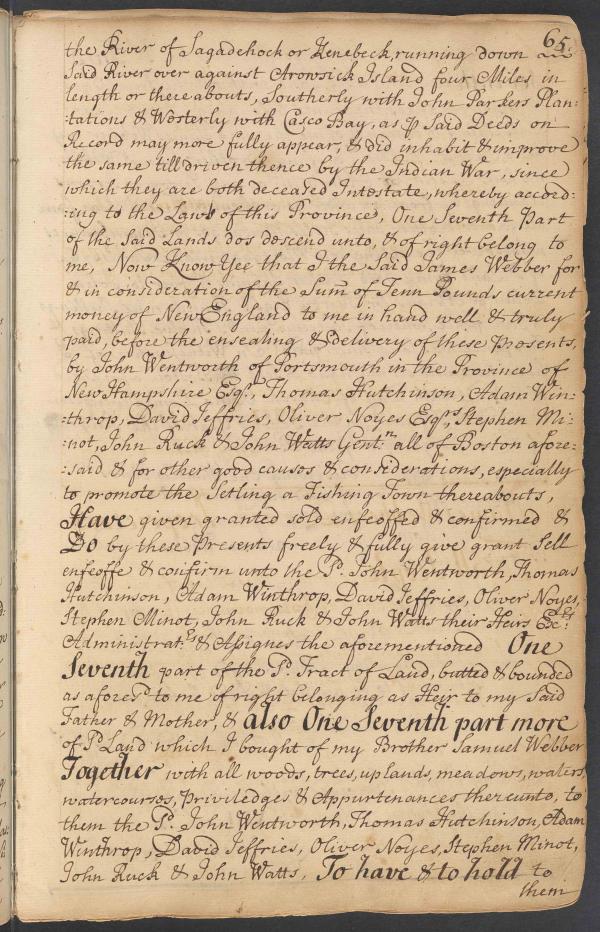 65.
the River of Sagadehock or Kenebeck, running down
Said River over against Arowsick Island four Miles in
length or thereabouts, Southerly with John Parkers Plan:
:tations & Westerly with Casco Bay, as ⅌ Said Deeds on
Record may more fully appear, & did inhabit & improve
the same till driven thence by the Indian War, since
which they are both deceased Intestate, whereby accord:
:ing to the Laws of this Province, One Seventh Part
of the Said Lands dos descend unto, & of right belong to
me, Now Know Yee that I the Said James Webber for
& in consideration of the Sum of Tenn Pounds current
money of New England to me in hand well & truly
paid, before the ensealing & delivery of these Presents,
by John Wentworth of Portsmouth in the Province of
New Hampshire Esqr., Thomas Hutchinson, Adam Win:
:throp, David Jeffries, Oliver Noyes Esqrs, Stephen Mi:
:not, John Ruck & John Watts Gentn. all of Boston afore:
:said & for other good causes & considerations, especially
to promote the Setling a Fishing Town thereabouts,
Have given granted sold enfeoffed & confirmed &
Do by these Presents freely & fully give grant Sell
enfeoffe & confirm unto the Sd. John Wentworth, Thomas
Hutchinson, Adam Winthrop, David Jeffries, Oliver Noyes,
Stephen Minot, John Ruck & John Watts their Heirs Exrs.
Administratrs. & Assignes the aforementioned One
Seventh part of the Sd. Tract of Land, butted & bounded
as aforesd. to me of right belonging as Heir to my Said
Father & Mother, & also One Seventh part more
of Sd Land which I bought of my Brother Samuel Webber
Together with all woods, trees, uplands, meadows, waters,
watercourses, Priviledges & Appurtenances thereunto, to
them the Sd. John Wentworth, Thomas Hutchinson, Adam
Winthrop, David Jeffries, Oliver Noyes, Stephen Minot,
John Ruck & John Watts, To have & to hold to
them